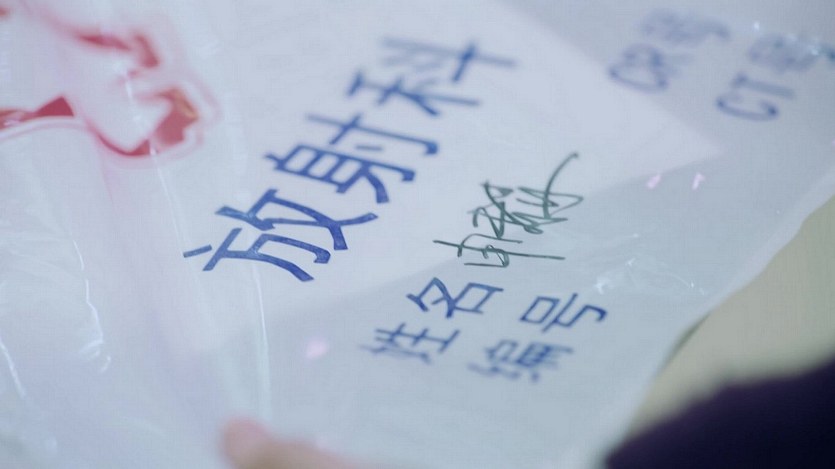 放射科
姓名
编号
CR号
CT号